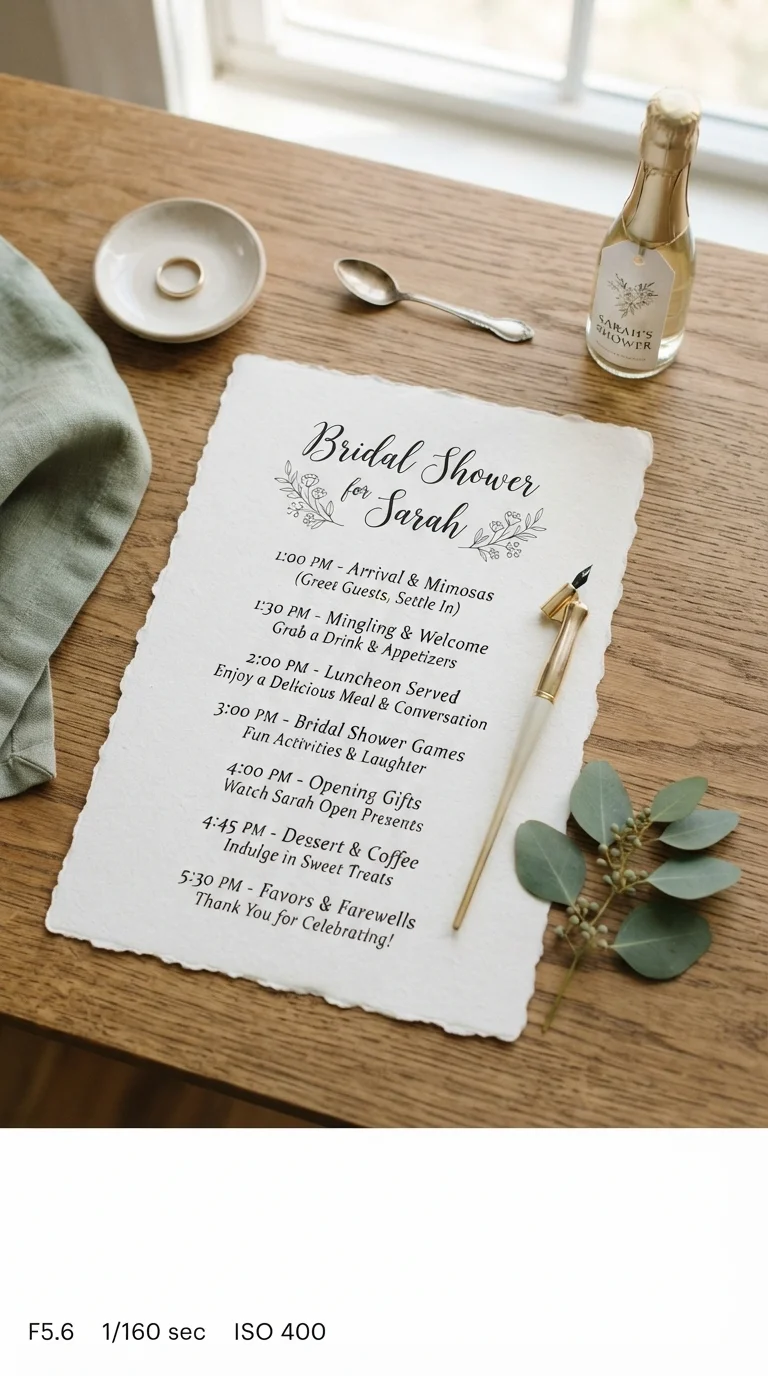 SARAH'S
SHOWER
Bridal Shower
for Sarah
1:00 PM - Arrival & Mimosas
(Greet Guests, Settle In)
1:30 PM - Mingling & Welcome
Grab a Drink & Appetizers
2:00 PM - Luncheon Served
Enjoy a Delicious Meal & Conversation
3:00 PM - Bridal Shower Games
Fun Activities & Laughter
4:00 PM - Opening Gifts
Watch Sarah Open Presents
4:45 PM - Dessert & Coffee
Indulge in Sweet Treats
5:30 PM - Favors & Farewells
Thank You for Celebrating!
F5.6 1/160 sec ISO 400